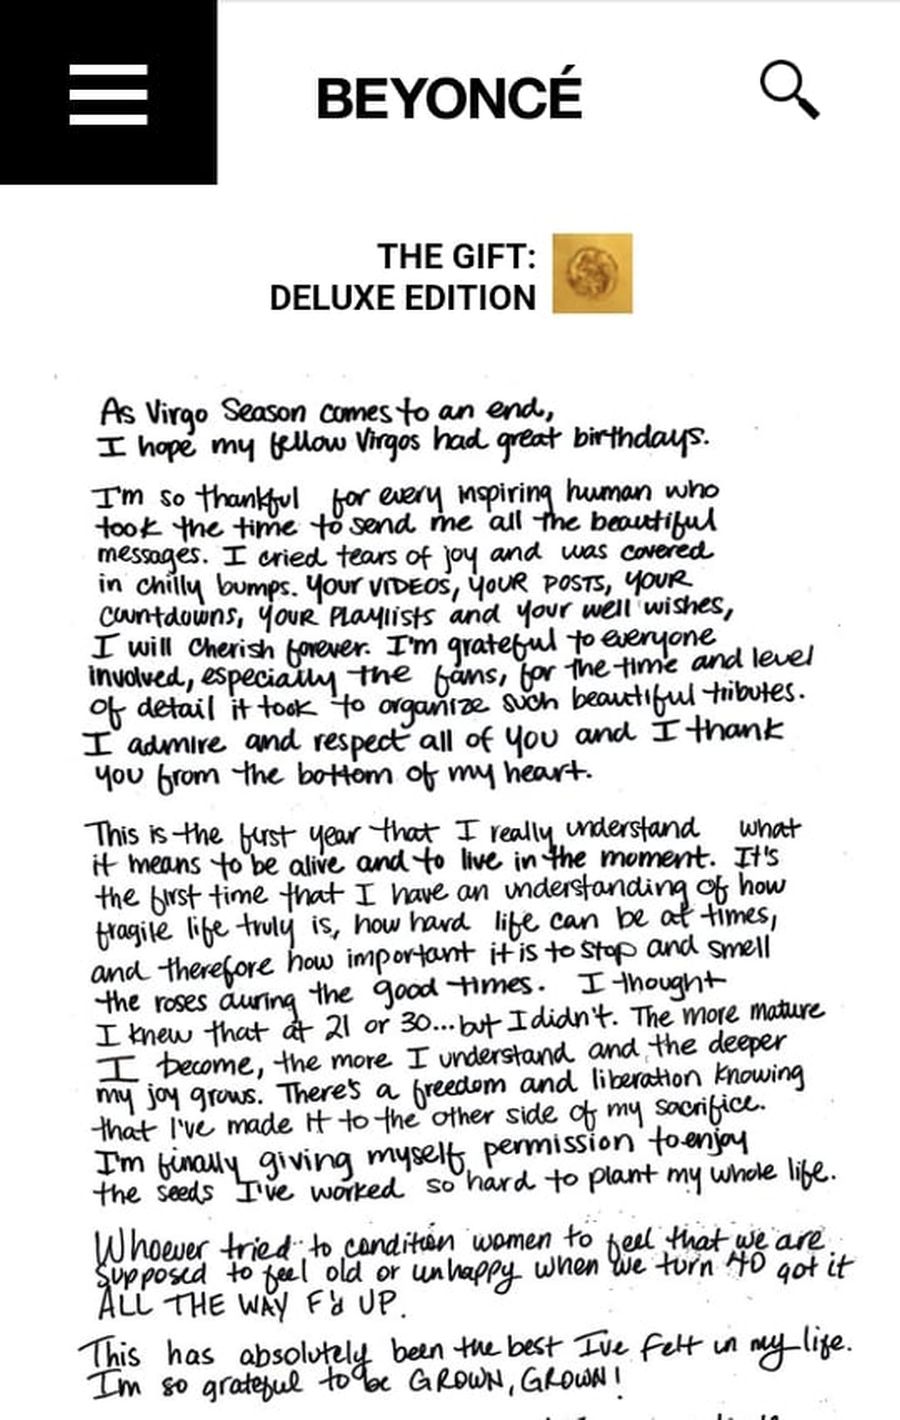 BEYONCÉ
THE GIFT:
DELUXE EDITION
As Virgo Season comes to an end,
I hope my fellow Virgos had great birthdays.
I'm so thankful for every inspiring human who
took the time to send me all the beautiful
messages. I cried tears of joy and was covered
in chilly bumps. Your VIDEOS, YOUR POSTS, YOUR
countdowns, YOUR PLAYLISTS and your well wishes,
I will cherish forever. I'm grateful to everyone
involved, especially the fans, for the time and level
of detail it took to organize such beautiful tributes.
I admire and respect all of you and I thank
you from the bottom of my heart.
This is the first year that I really understand what
it means to be alive and to live in the moment. It's
the first time that I have an understanding of how
fragile life truly is, how hard life can be at times,
and therefore how important it is to stop and smell
the roses during the good times. I thought
I knew that at 21 or 30...but I didn't. The more mature
I become, the more I understand and the deeper
my joy grows. There's a freedom and liberation knowing
that I've made it to the other side of my sacrifice.
I'm finally giving myself permission to enjoy
the seeds I've worked so hard to plant my whole life.
Whoever tried to condition women to feel that we are
supposed to feel old or unhappy when we turn 40 got it
ALL THE WAY F'd UP.
This has absolutely been the best I've felt in my life.
I'm so grateful to be GROWN, GROWN!